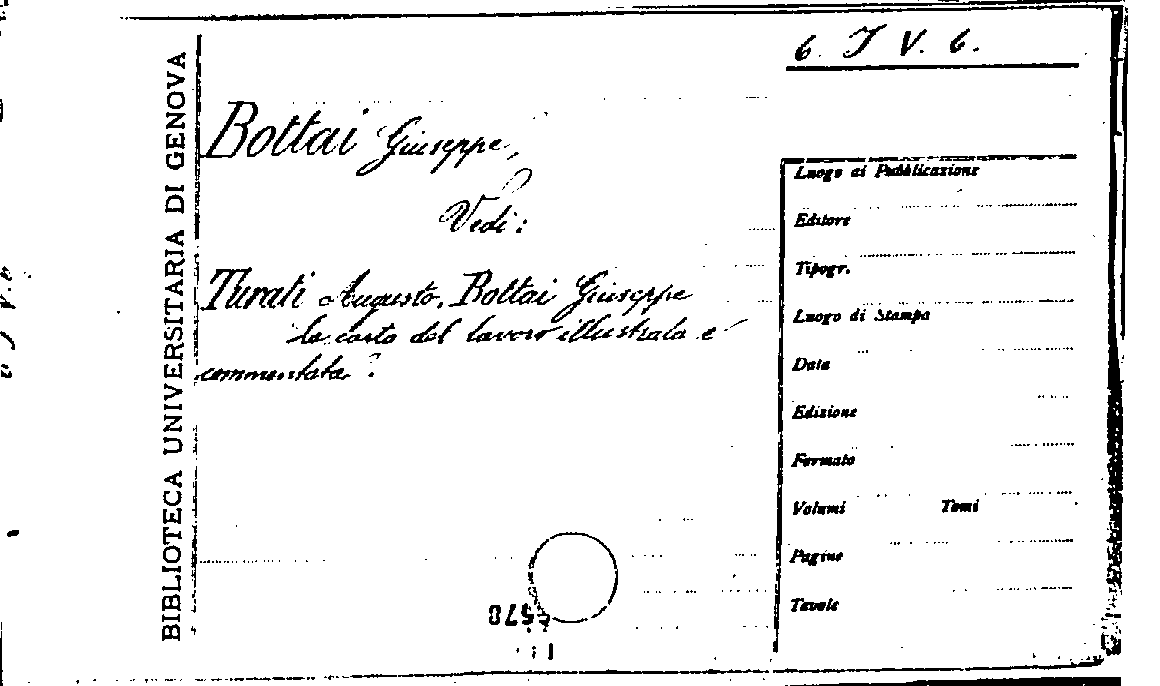 6. I V. 6.
BIBLIOTECA UNIVERSITARIA DI GENOVA
Bottai Giuseppe,
Vedi:
Turati Augusto, Bottai Giuseppe
la carta del lavoro illustrata e
commentata.
Luogo di Pubblicazione
Editore
Tipogr.
Luogo di Stampa
Data
Edizione
Formato
Volumi Tomi
Pagine
Tavole